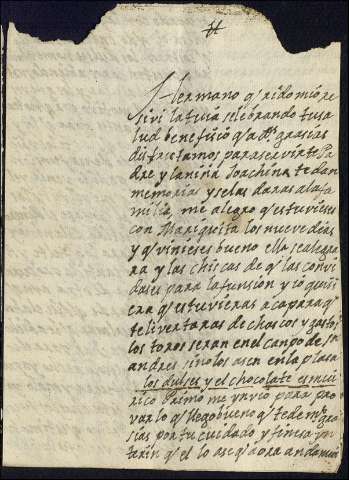 Hermano qerido mio re
sivi la tuia selebrando tu sa
lud benefisio qe a Ds grasias
disfrutamos para servirte Pa
dre y la niña Joachina te dan
memorias y se las daras a la fa
milia, me alegro qe estuvieses
con Mariquita los nueve dias
y qe vinieses bueno ella se alegra
ra y las chicas de qe las convi
dases para la funsion y io quisi
era qe estuvieras aca para qe
te livertaras de chascos y gastos
los toros seran en el canpo de sn
andres si no los asen en la plasa
los dulses y el chocolate es mui
rico Primo me ynvio para pro
varlo qe llego bueno qe te de ms gra
sias por tu cuidado y finesa
qe el lo ase aora andamui